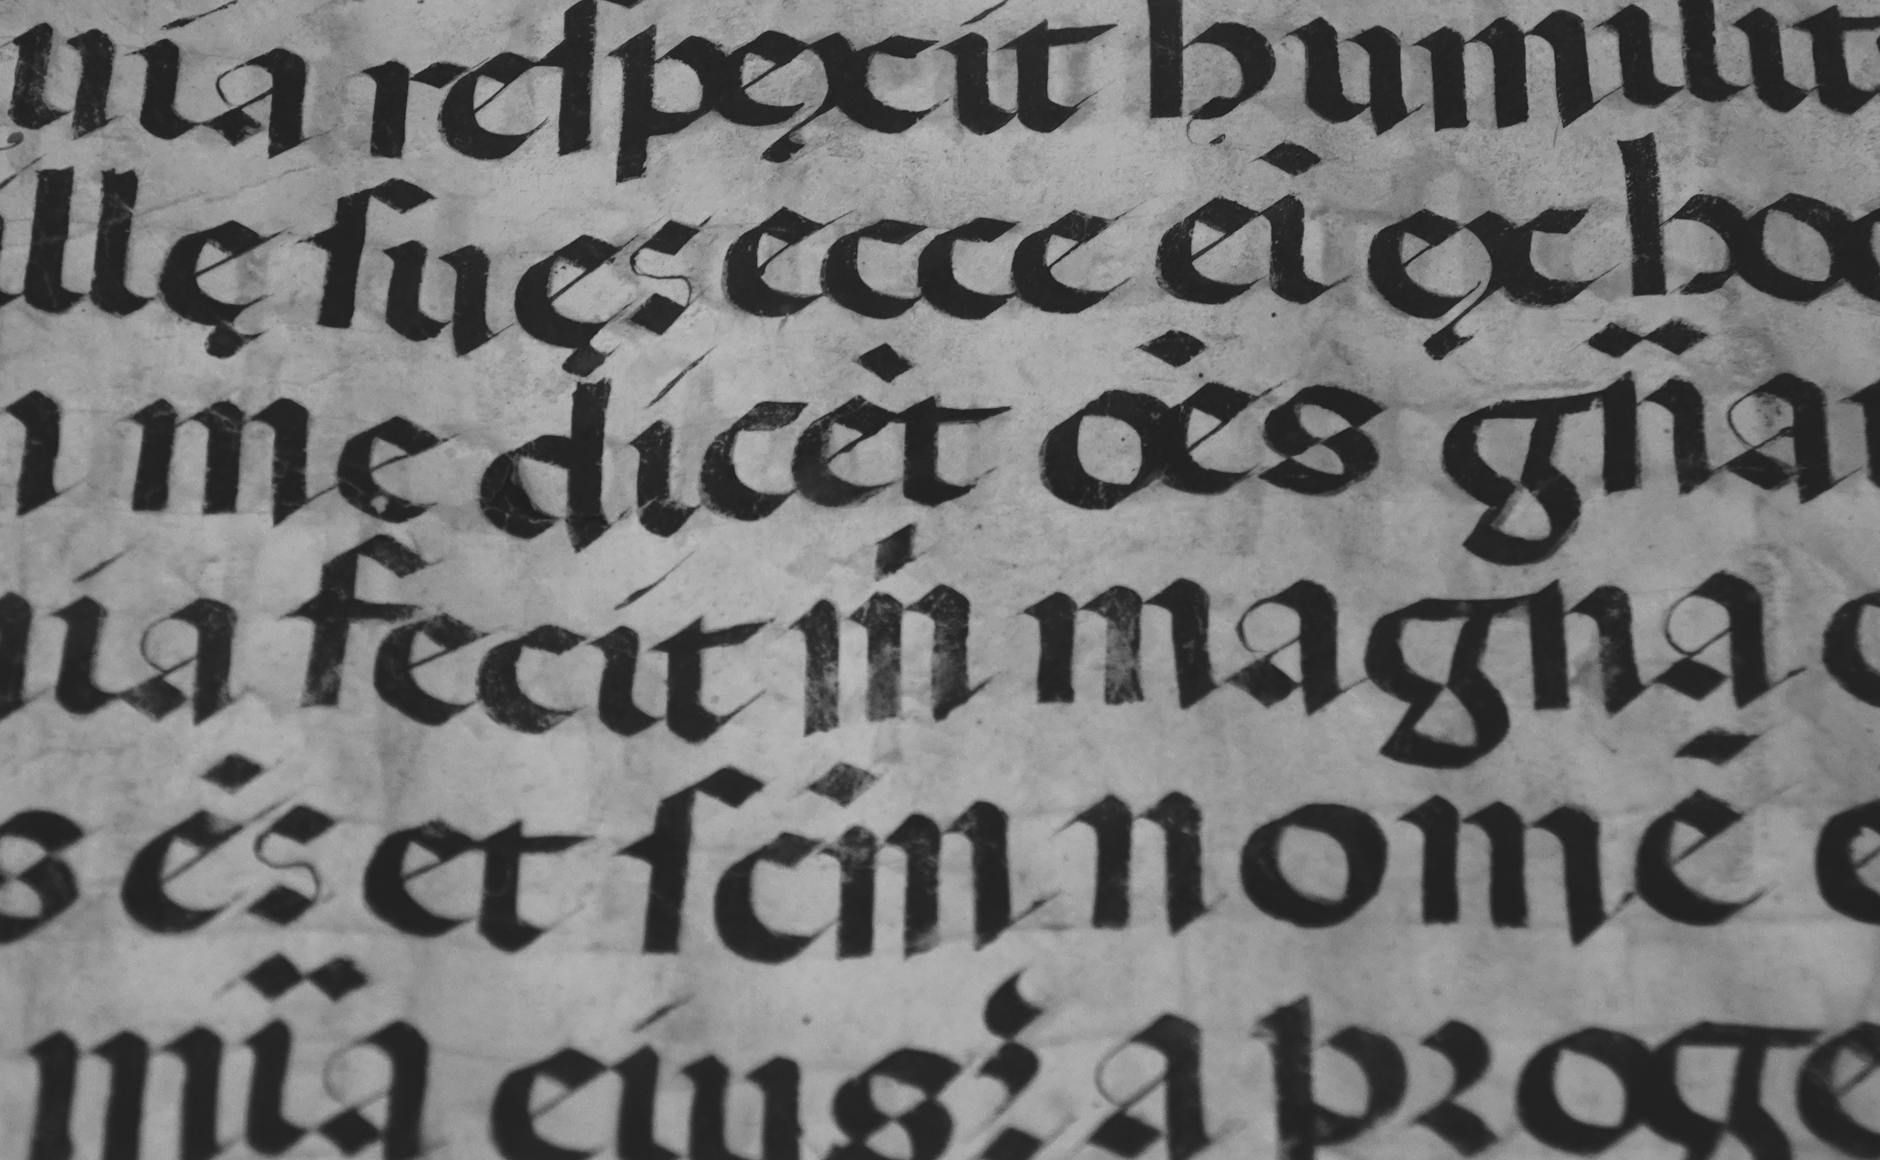 uia respexit humilit
illę suęs ecce ei ęx hoc
i me dicėt oė̇s gn̈a
uia fecit m̍ magna
s ės et scm̄ nomē e
mïa eius; a proge